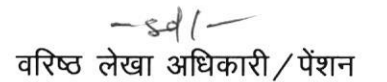 -sd/-
वरिष्ठ लेखा अधिकारी/पेंशन